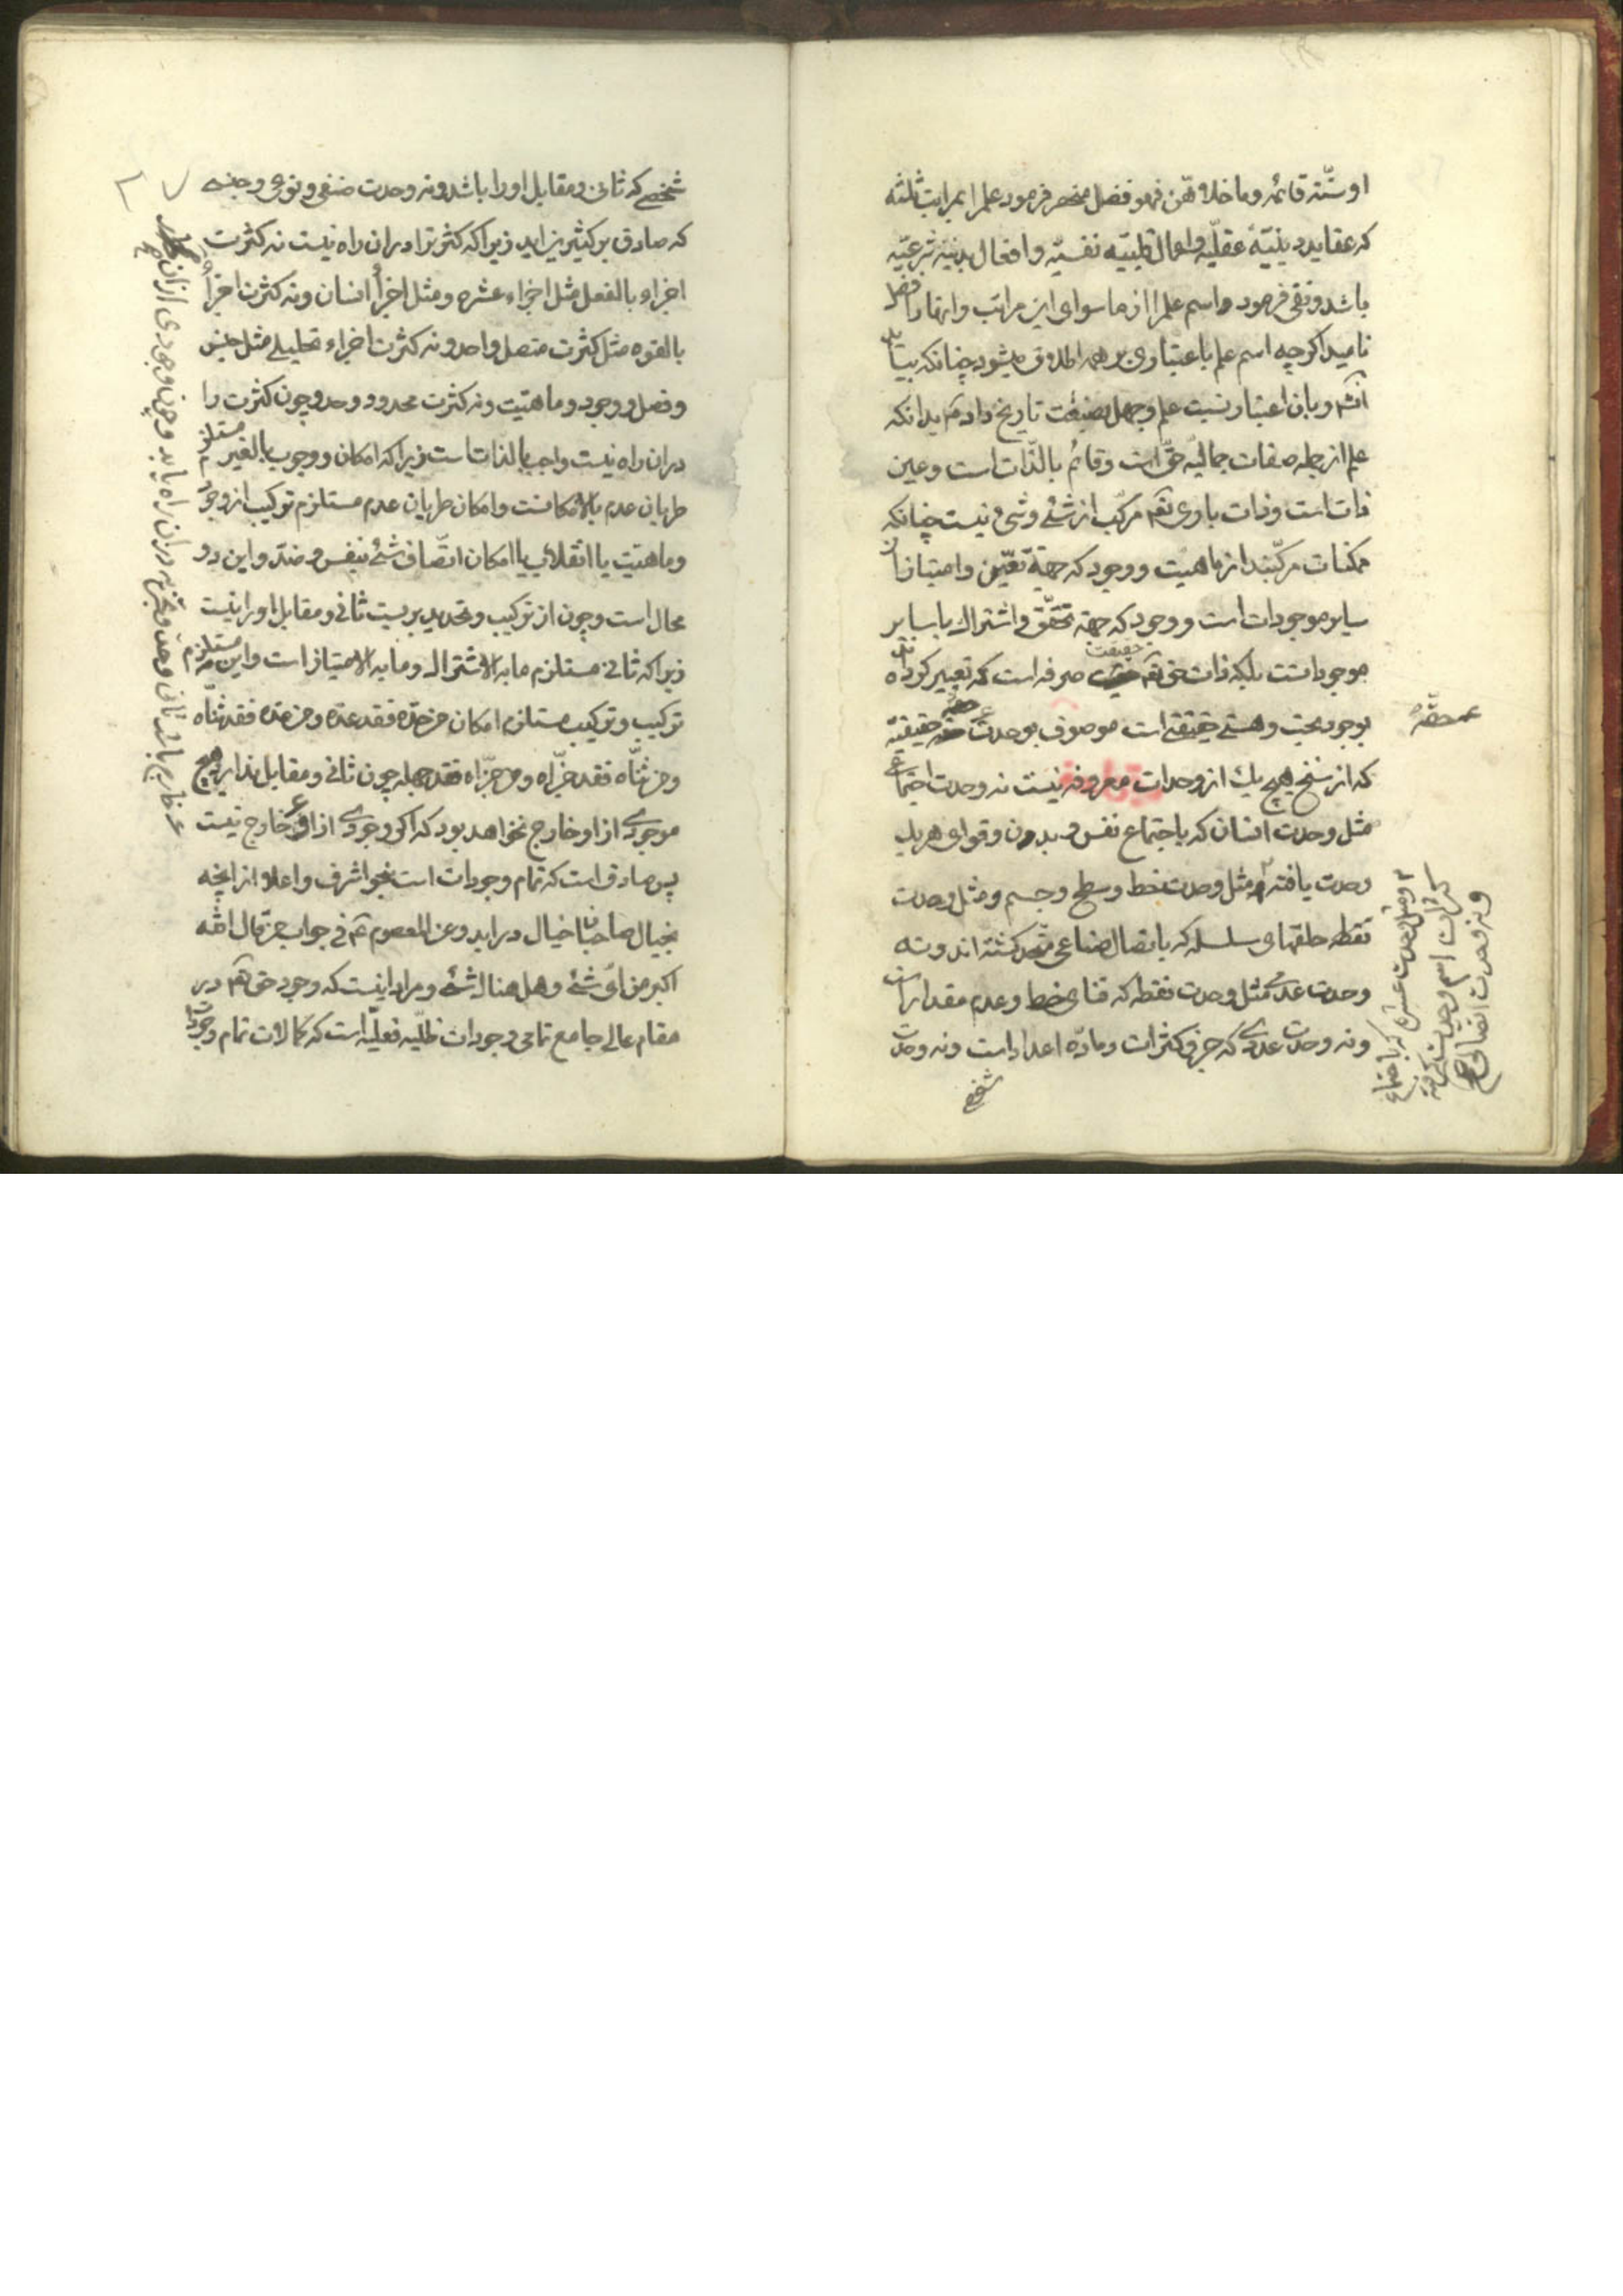 او سنّة قائمه وما خلاهنّ فهو فضل منحصر فرمود علم را بمراتب ثلثه
که عقاید دینیّهٔ عقلیّه و اعمال قلبیّه نفسیّه و افعال بدنیه شرعیّه
باشد و نفی فرمود اسم علم را از ما سوای این مراتب و انها را فضل
نامید اکرچه اسم علم باعتباری بر همه اطلاق میشود چنانکه بیاید
انشٓ و بان اعتبار نسبت علم و جهل بصنعت تاریخ دادم بدانکه
علم از جمله صفات جمالیّه حقّ است و قائم بالذّات است و عین
ذات است و ذات باری تعٓ مرکّب از شئ و شئ نیست چنانکه
ممکنات مرکّبند از ماهیّت و وجود که جهة تعیّن و امتیاز از
سایر موجودات است و وجود که جهة تحقّق و اشتراک با سایر
موجوداتست بلکه ذات حق تعٓ حقیقت صرفه است که تعبیر کرده
بوجود بحت و هستی حقیقی است موصوف بوحدت حقه حقیقیّه
محضه
که از سنخ هیچ یک از وحدات معروفه نیست نه وحدت اجتماعی
مثل وحدت انسان که باجتماع نفس و بدن و قوای هر یک
وحدت یافته و مثل وحدت خط و سطح و جسم و مثل وحدت
نقطه حلقهای سلسله که باتصال صناعی متّحد کشته اند و نه
وحدت عدمی مثل وحدت نقطه که فنای خط و عدم مقدار است
و نه وحدت عددی که جزو کثرات و مادّه اعداد است و نه وحدت
شخصی
و مثل وحدت عشره که باجتماع
کثرات اسم وحدت گرفته
و نه وحدت اتصالی
شخصی که ثانی و مقابل او را باشد و نه وحدت صنفی و نوعی و جنسی
که صادق بر کثیرین اید زیرا که کثرت را در ان راه نیست نه کثرت
اجزاء بالفعل مثل اجزاء عشره و مثل اجزاء انسان و نه کثرت اجزاء
بالقوه مثل کثرت متصل واحد و نه کثرت اجزاء تحلیلی مثل جنس
و فصل و وجود و ماهیّت و نه کثرت محدود و حد و چون کثرت را
در ان راه نیست واجب بالذات است زیرا که امکان و وجوب بالغیر مستلزم
طریان عدم بالامکانست و امکان طریان عدم مستلزم ترکیب از وجود
و ماهیّت یا انقلاب یا امکان اتّصاف شئ بنفس و ضد و این دو
محال است و چون از ترکیب و تحدید بریست ثانی و مقابل او را نیست
زیرا که ثانی مستلزم ما به الاشتراک و ما به الامتیاز است و این مستلزم
ترکیب و ترکیب مستلزم امکان من حدّه فقد عدّه و من عدّه فقد ثنّاه
و من ثنّاه فقد جزّاه و من جزّاه فقد جهله چون ثانی و مقابل ندارد هیچ
موجودی از او خارج نخواهد بود که اکر وجودی از او خارج نیست
پس صادق است که تمام وجودات است بنحو اشرف و اعلا از انچه
بخیال صاحبان خیال دراید و عن المعصوم عٓ فی جواب من قال الله
اکبر من ائ شئ و هل هناک شئ و مراد اینست که وجود حق تعٓ در
مقام عالی جامع تمامی وجودات ظلّیه فعلیّه است که کمالات تمام وجودات
خارج باشد ثانی و حدّ و تجزیه در ان راه یابد و چون وجودی از ان